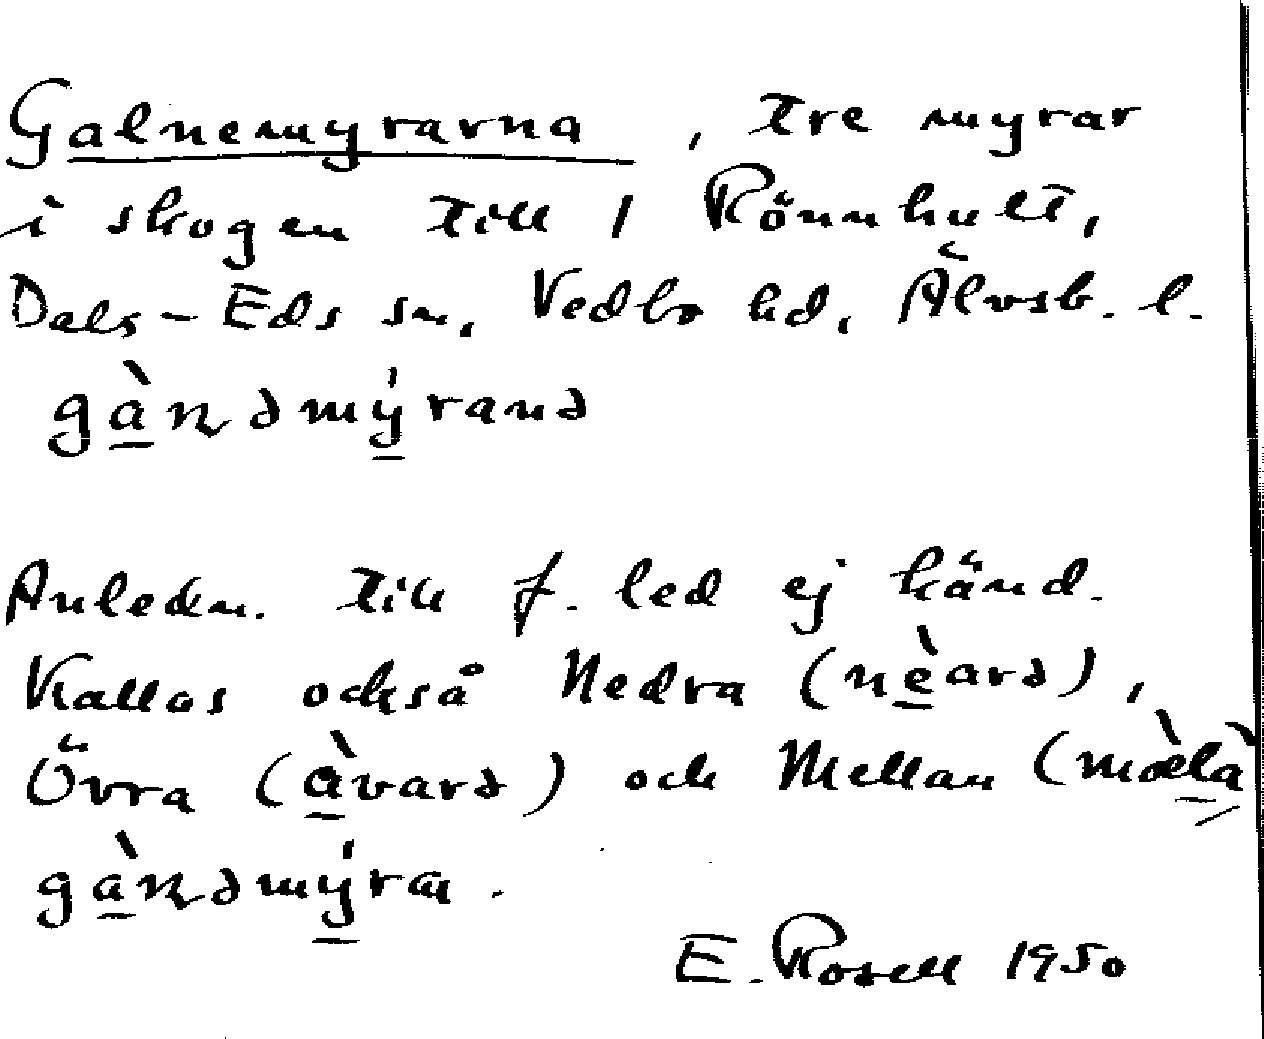 Galnemyrarna, tre myrar
i skogen till 1 Rönnhult,
Dals-Eds sn, Vedbo hd, Älvsb. l.
gàɳəmýranə
Anledn. till f. led ej känd.
Kallas också Nedra (nèarə),
Övra (àvarə) och Mellan (mæ̀la
gàɳəmýræ.
E. Rosell 1950